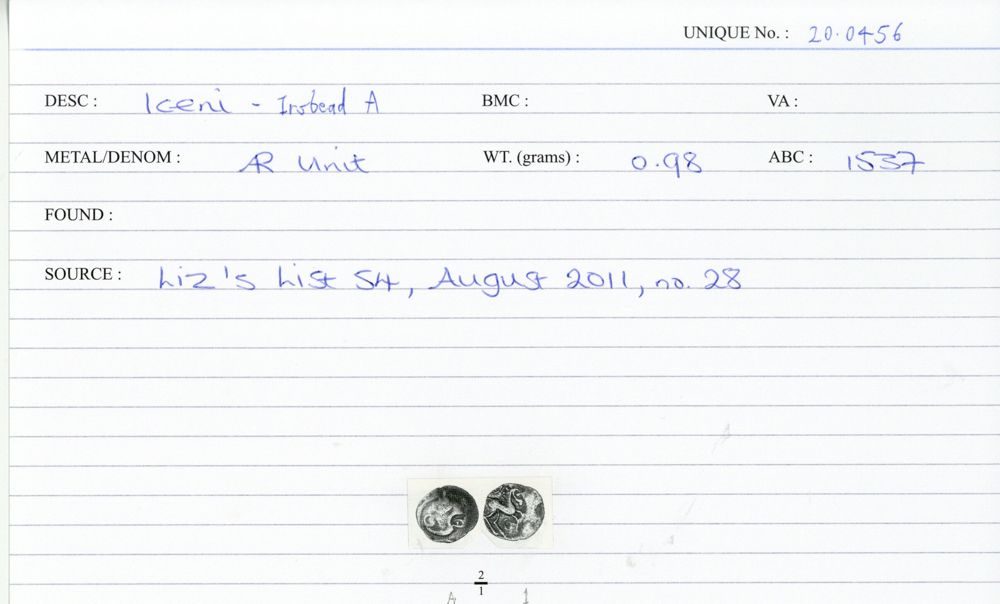 UNIQUE No. : 20.0456
DESC : Iceni - Irsbead A BMC : VA :
METAL/DENOM : AR Unit WT. (grams) : 0.98 ABC : 1537
FOUND :
SOURCE : Liz's List 54, August 2011, no. 28
2
1
A 1